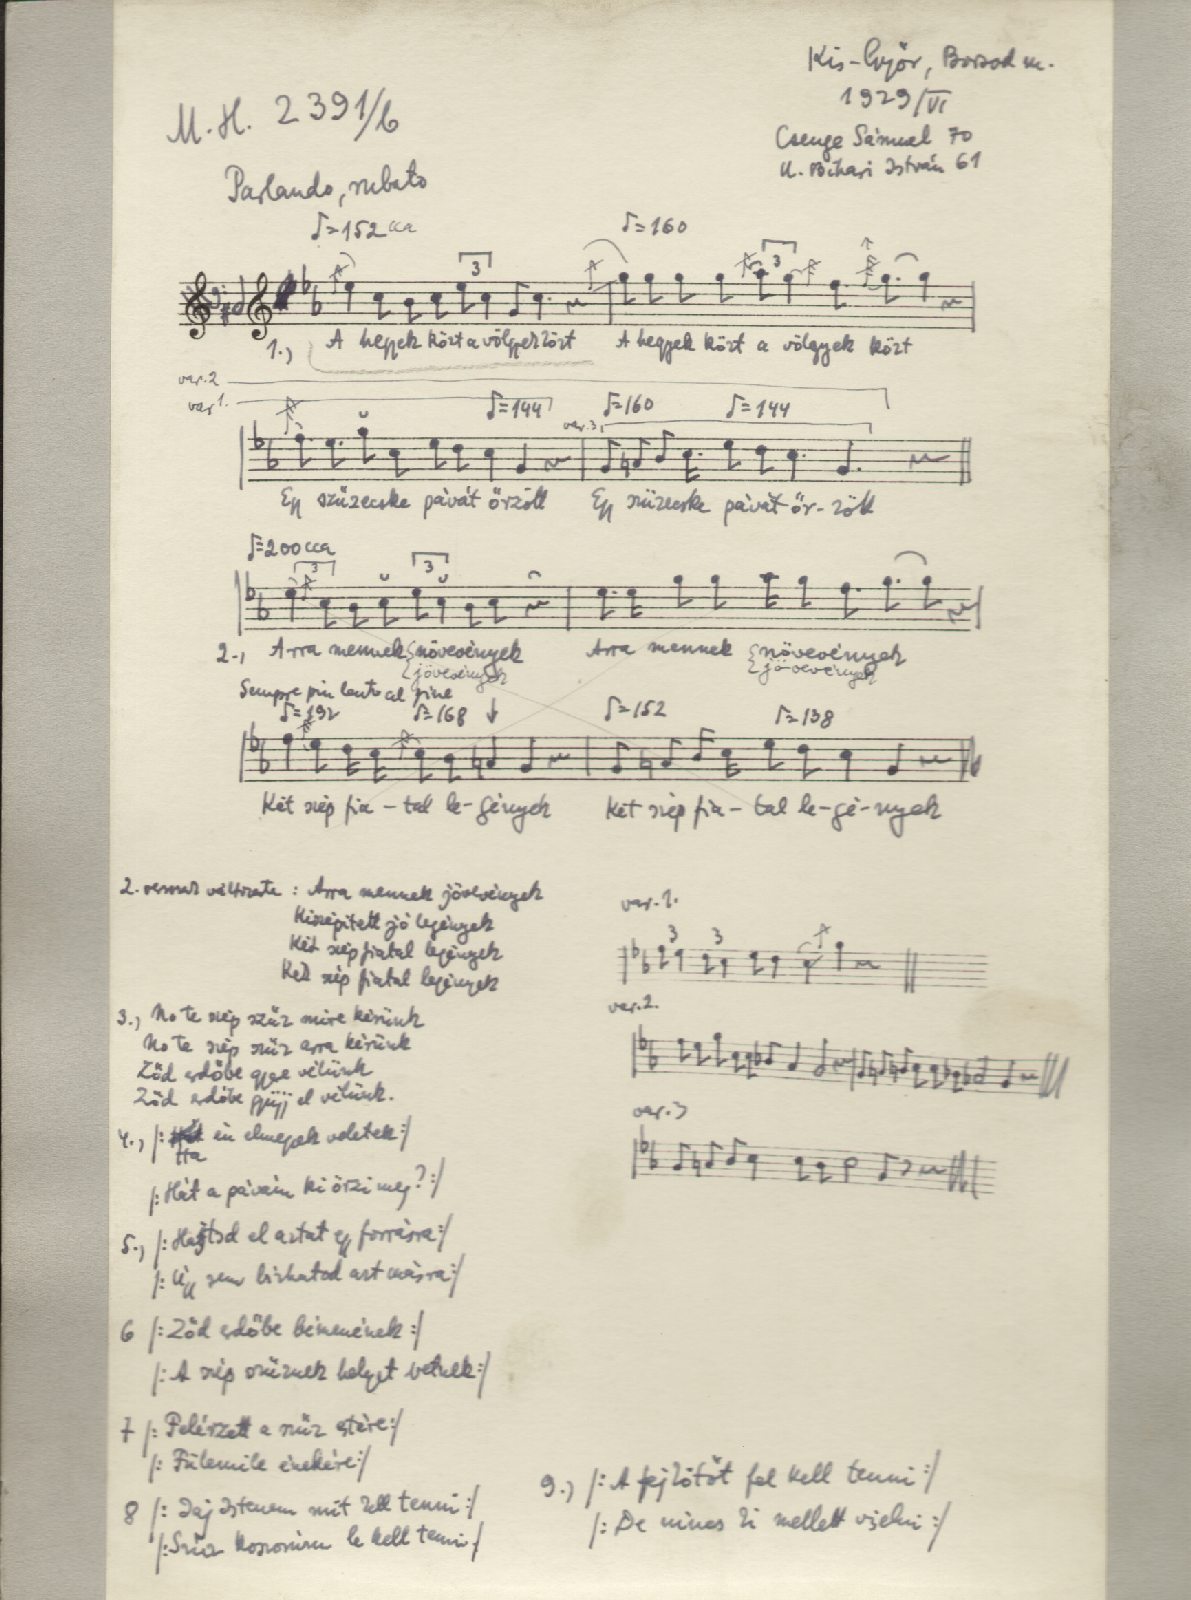 Kis-Győr, Borsod m.
1929/VI
M.H. 2391/b
Csenge Sámuel 70
K. Bihari István 61
Parlando, rubato
♪=152 cca
♪=160
3
3
1.,
A hegyek közt a völgyek közt
A hegyek közt a völgyek közt
var. 2
var 1.
♪=144
var. 3,
♪=160
♪=144
Egy szüzecske pávát őrzött
Egy szüzecske pávát őr-zött
♪=200 cca
3
3
2.,
Arra mennek növevények
Arra mennek növevények
jövevények
jövevények
Sempre più lento al fine
♪=192
♪=168
♪=152
♪=138
Két szép fia-tal le-gények
Két szép fia-tal le-gé-nyek
2. versszak változata: Arra mennek jövevények
Kiszépített jó legények
Két szép fiatal legények
Két szép fiatal legények
var. 1.
3
3
var. 2.
var. 3
3., No te szép szűz mire kérünk
No te szép szűz arra kérünk
Ződ erdőbe gyee vélünk
Ződ erdőbe gyüjj el vélünk.
4., /: Ha én elmegyek veletek :/
/: Hát a pávám ki őrzi meg? :/
5., /: Hajtsd el aztat egy forrásra :/
/: Úgy sem bízhatod azt másra :/
6 /: Ződ erdőbe bémenének :/
/: A szép szűznek helyet vetnek :/
7 /: Felérzett a szűz estére :/
/: Fülemile énekére :/
8 /: Jaj Istenem mit kell tenni :/
/: Szűz koszorúm le kell tenni :/
9., /: A fejkötőt fel kell tenni :/
/: De nincs ki mellett viselni :/